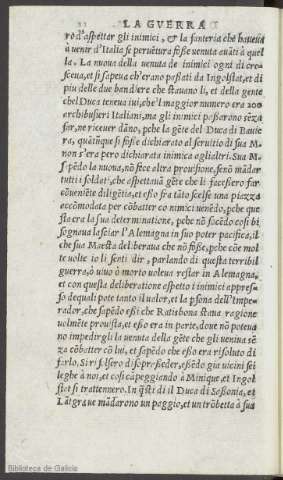 LA GUERRA
ro d'aspettar gli inimici, & la fanteria che haueua
à uenir d'Italia se per uẽtura fosse uenuta auãti à quel
la. La nuoua della uenuta de inimici ogni di cre
sceua, et si sapeua ch'erano passati da Ingolstat, et di
piu delle due bandiere che stauano li, et della gente
chel Duca teneua iui, che'l maggior numero era 200
archibusieri Italiani, ma gli inimici passarono sẽza
far, ne riceuer dãno, pche la gẽte del Duca di Bauie
ra, quãtũque si fosse dichiarato al seruitio di sua M.
non s'era pero dichiarata inimica agli altri. Sua M.
sapẽdo la nuoua, nõ fece altra prouisione, senõ mãdar
tutti i soldati, che aspettauã gẽte che li facessero far
cõueniẽte diligẽtia, et esso fra tãto scelse una piazza
accõmodata per cõbatter co nimici uenẽdo, pche que
sta era la sua determinatione, pche nõ facẽdo cosi bi
sognaua lasciar l'Alemagna in suo poter pacifica, il
che sua Maesta deliberaua che nõ fosse, pche cõe mol
te uolte io li senti dir, parlando di questa terribil
guerra, ò uiuo ò morto uoleua restar in Alemagna,
et con questa deliberatione aspetto i inimici appres
so de quali pote tanto il ualor, et la psona dell'Impe
rador, che sapẽdo essi che Ratisbona staua ragione
uolmẽte prouista, et esso era in parte, doue nõ poteua
no impedirgli la uenuta della gẽte che gli ueniua sẽ
za cõbatter cõ lui, et sapẽdo che esso era risoluto di
farlo, si risolsero di sopra sedere, essẽdo gia uicini sei
leghe à noi, et cosi cãpeggiando à Minique, et Ingol
stat si trattennero. In q̃sti di il Duca di Sassonia, et
Lãtgraue mãdarono un paggio, et un trõbetta à sua
Biblioteca de Galicia